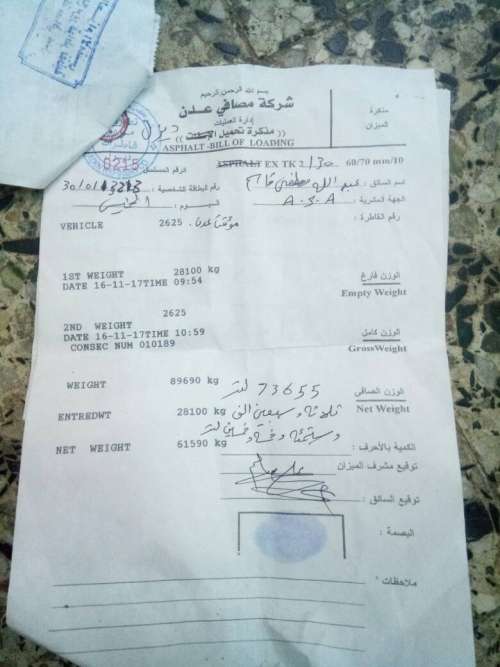 بسم الله الرحمن الرحيم
شركة مصافي عدن
إدارة العمليات
((مذكرة تحميل الإسفلت))
ديزل
ASPHALT -BILL OF LOADING
مذكرة
الميزان
0215
الرقم المسلسل
ASPHALT EX TK 2130 60/70 mm/10
اسم السائق : عبد الله مصطفى
رقم البطاقة الشخصية :
الجهة المشترية : A.S.A
اليوم : الخميس
رقم القاطرة :
VEHICLE 2625 مؤقت عدن
1ST WEIGHT 28100 kg
DATE 16-11-17TIME 09:54
الوزن فارغ
Empty Weight
2625
2ND WEIGHT
DATE 16-11-17TIME 10:59
CONSEC NUM 010189
الوزن كامل
GrossWeight
WEIGHT 89690 kg
73655 لتر
الوزن الصافي
Net Weight
ENTREDWT 28100 kg
ثلاثة وسبعين الف
وستمئة وخمسة وخمسين لتر
NET WEIGHT 61590 kg
الكمية بالأحرف :
توقيع مشرف الميزان
توقيع السائق :
البصمة :
ملاحظات :